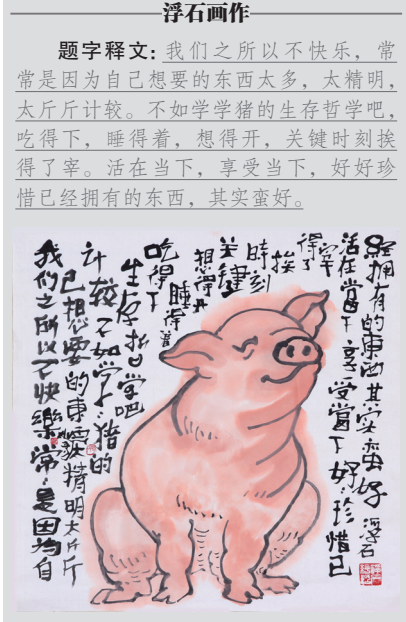 浮石画作
题字释文：我们之所以不快乐，常
常是因为自己想要的东西太多，太精明，
太斤斤计较。不如学学猪的生存哲学吧，
吃得下，睡得着，想得开，关键时刻挨
得了宰。活在当下，享受当下，好好珍
惜已经拥有的东西，其实蛮好。
我们之所以不快樂常〻是因为自
己想要的東精明太斤斤
计较不如学〻猪的
生存哲学吧
吃得下
睡得着
想得开
关键
時刻
挨
得了宰
活在當下享受當下好〻珍惜已
經拥有的東西其实蛮好
浮石